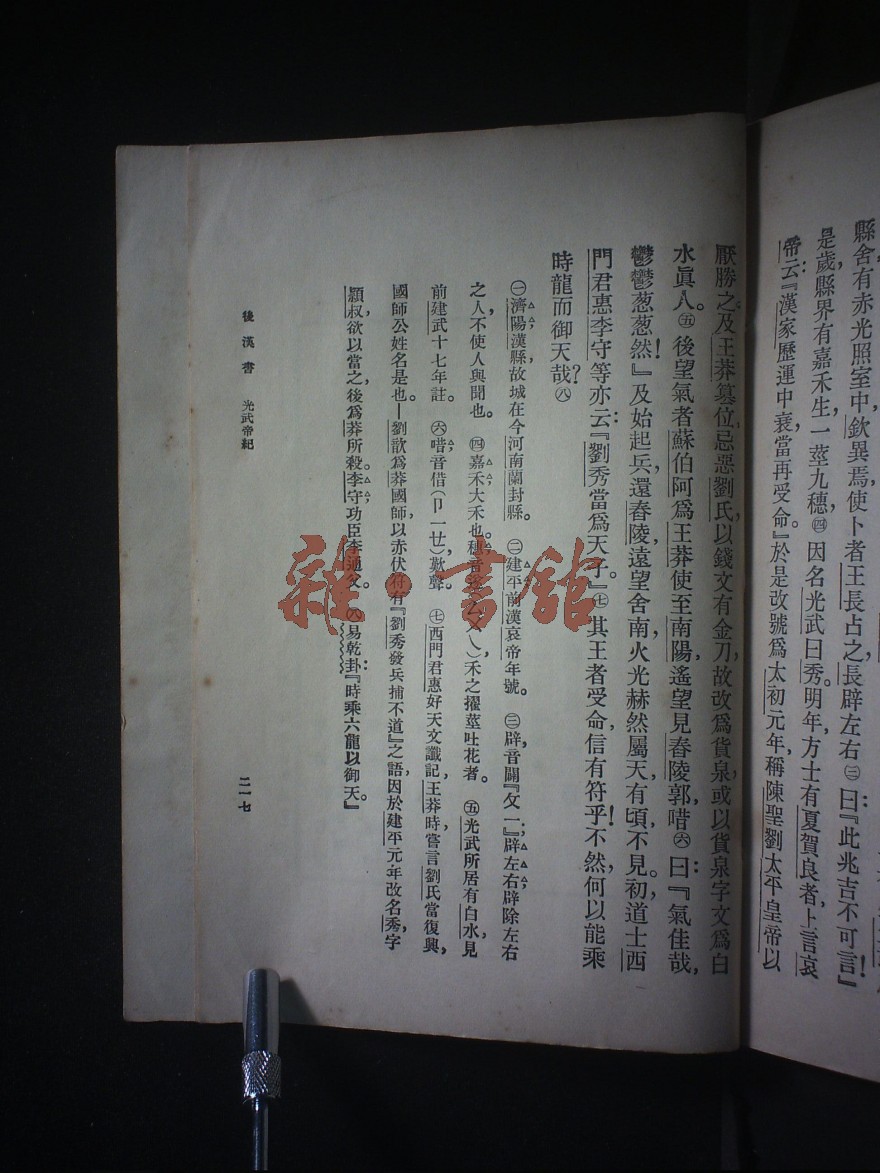 縣舍有赤光照室中，欽異焉，使卜者王長占之，長辟左右㊂曰：『此兆吉不可言！』
是歲縣界有嘉禾生，一莖九穗，㊃因名光武曰秀。明年，方士有夏賀良者，上言哀
帝云：『漢家歷運中衰，當再受命。』於是改號爲太初元年，稱陳聖劉太平皇帝以
厭勝之。及王莽篡位，忌惡劉氏，以錢文有金刀，故改爲貨泉，或以貨泉字文爲白
水眞人。㊄後望氣者蘇伯阿爲王莽使至南陽，遙望見舂陵郭，唶㊅曰：『氣佳哉，
鬱鬱葱葱然！』及始起兵還舂陵，遠望舍南，火光赫然屬天，有頃不見。初，道士西
門君惠李守等亦云：『劉秀當爲天子。』㊆其王者受命，信有符乎！不然，何以能乘
時龍而御天哉？㊇
㊀濟陽，漢縣，故城在今河南蘭封縣。　㊁建平，前漢哀帝年號。　㊂辟，音闢『ㄆㄧ』；辟左右，辟除左右
之人，不使人與聞也。　㊃嘉禾，大禾也。穗音ㄙㄨㄟ）禾之擢莖吐花者。　㊄光武所居有白水，見
前建武十七年註。　㊅唶音借（ㄐㄧㄝ）歎聲。　㊆西門君惠好天文讖記，王莽時嘗言劉氏當復興，
國師公姓名是也。——劉歆爲莽國師，以赤伏符有『劉秀發兵捕不道』之語，因於建平元年改名秀，字
穎叔，欲以當之，後爲莽所殺。李守，功臣李通父。　㊇易乾卦：『時乘六龍以御天。』
後漢書　光武帝紀
二一七
雜·書館